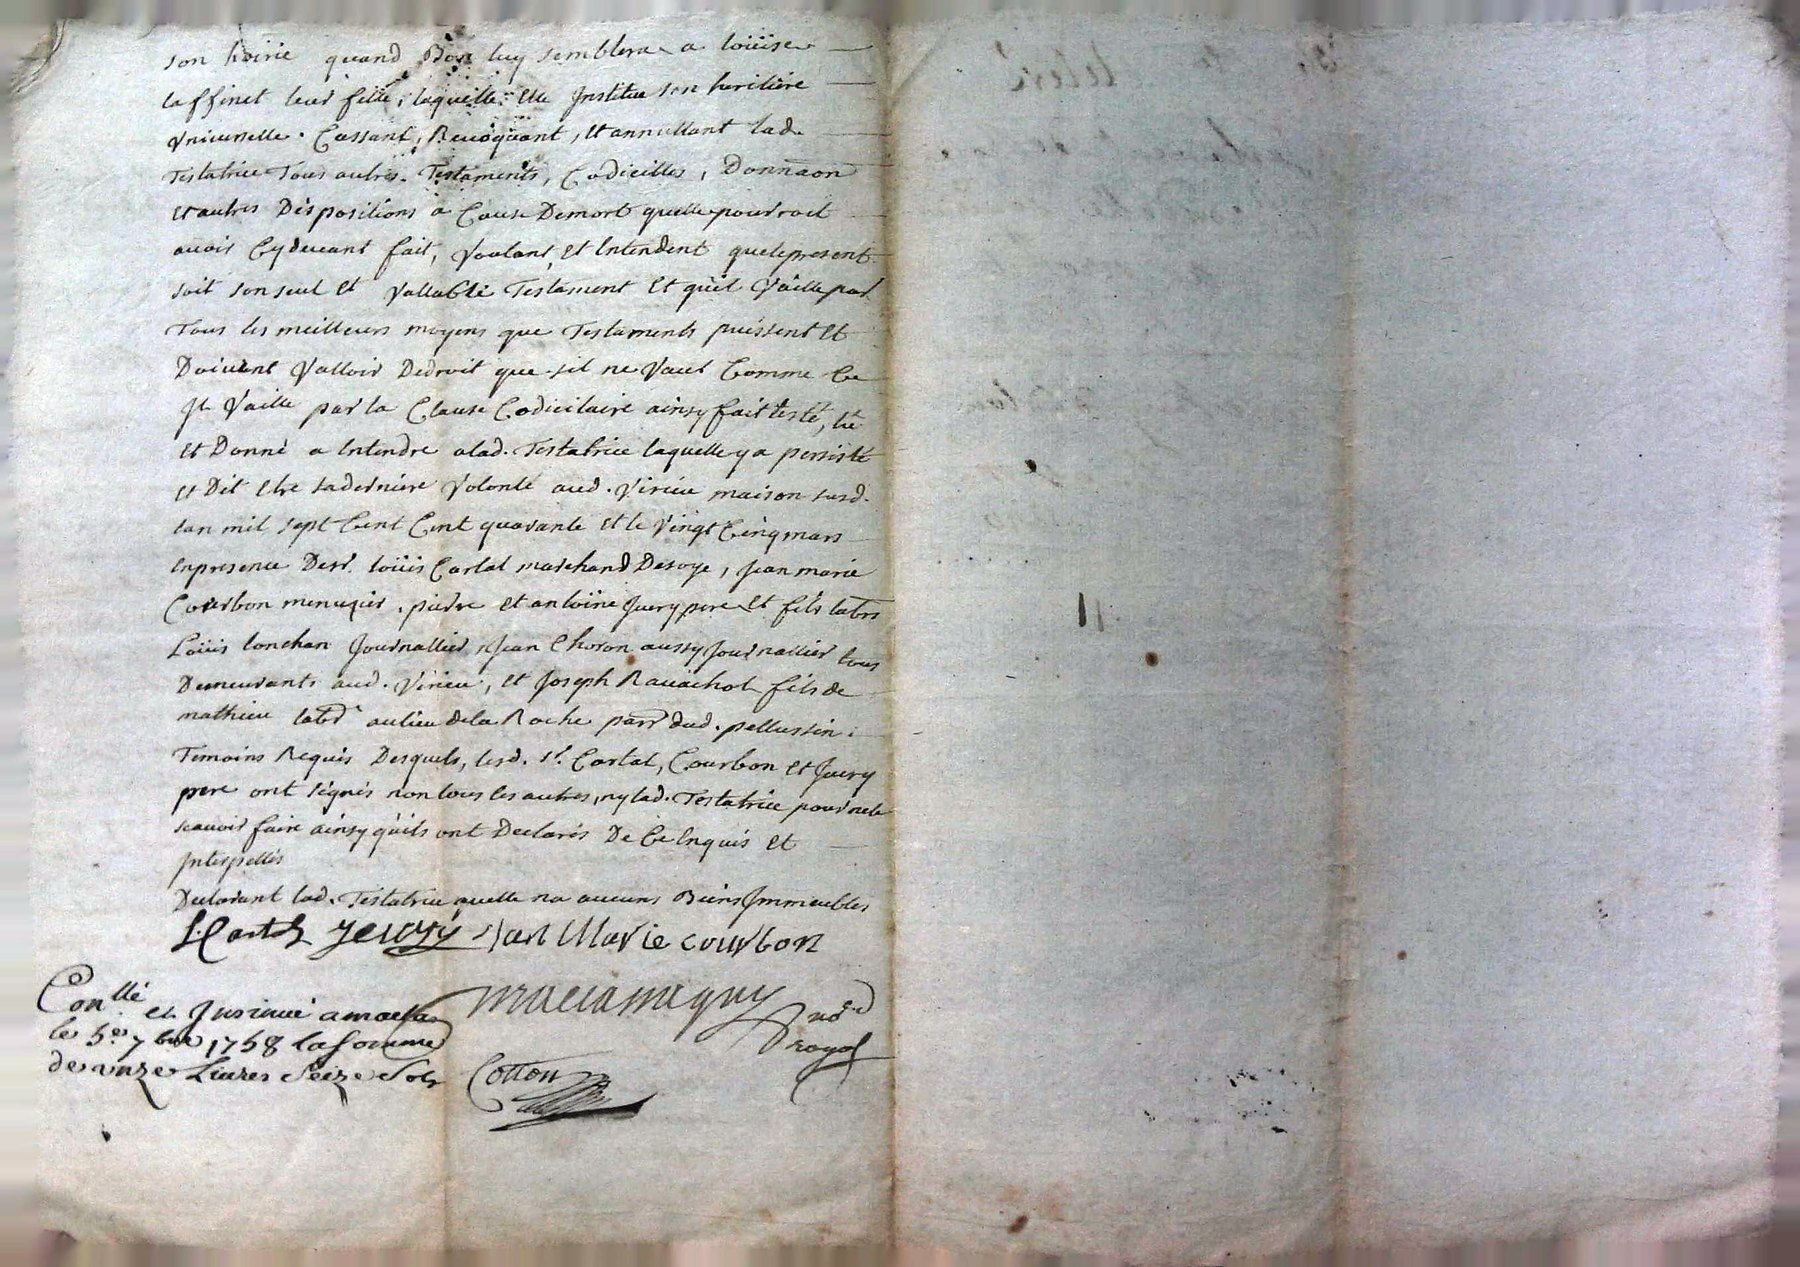 son hoirie quand Bon luy semblera a loüise
laffinet leur fille, laquelle elle Institue son heritiére
vniverselle. Cassant, Revoquant, et annullant lad.
Testatrice Tous autres Testaments, Codicilles, Donnaon
et autres Dispositions a Cause Demort quelle pourroit
avoir Cydevant fait, Voulant, et Intendent quelepresent
soit son seul et Vallable Testament et quil Vaille par
Tous les meilleurs moyens que Testaments puissent et
Doivent Valloir Dedroit que sil ne Vaut Comme Ce
Jl Vaille par la Clause Codicilaire ainsy fait testé, lu
et Donné a Intendre alad. Testatrice laquelle y a persisté
et Dit etre saderniere Volonté aud. Virieu maison susd.
lan mil sept Cent Cint quarante et le Vingt Cinq mars
enpresence Desr. loüis Cartal marchand Desoye, Jean marie
Courbon menuzier, pierre et antoine Juery pere et fils labrs
Loüis lonchan Journallier, Jean Choron aussy Journallier tous
Demeurants aud. Virieu, et Joseph Ravachol fils de
mathieu labr au lieu dela Roche parr dud. pellussin
Temoins Requis Desquels, lesd. sr. Cartal, Courbon et Juery
pere ont signés non tous les autres, ny lad. Testatrice pour nele
scavoir faire ainsy quils ont Declarés De Ce Inquis et
Interpellés
Declarant lad. Testatrice quelle na aucuns Biens Immeubles
L. Cartal Jeury Jan Marie courbon
Conllé et Jnsinué amalla
le 5e 7bre 1758 la somme
de onze Livres Seize Sols
Cotton
no.re
royal